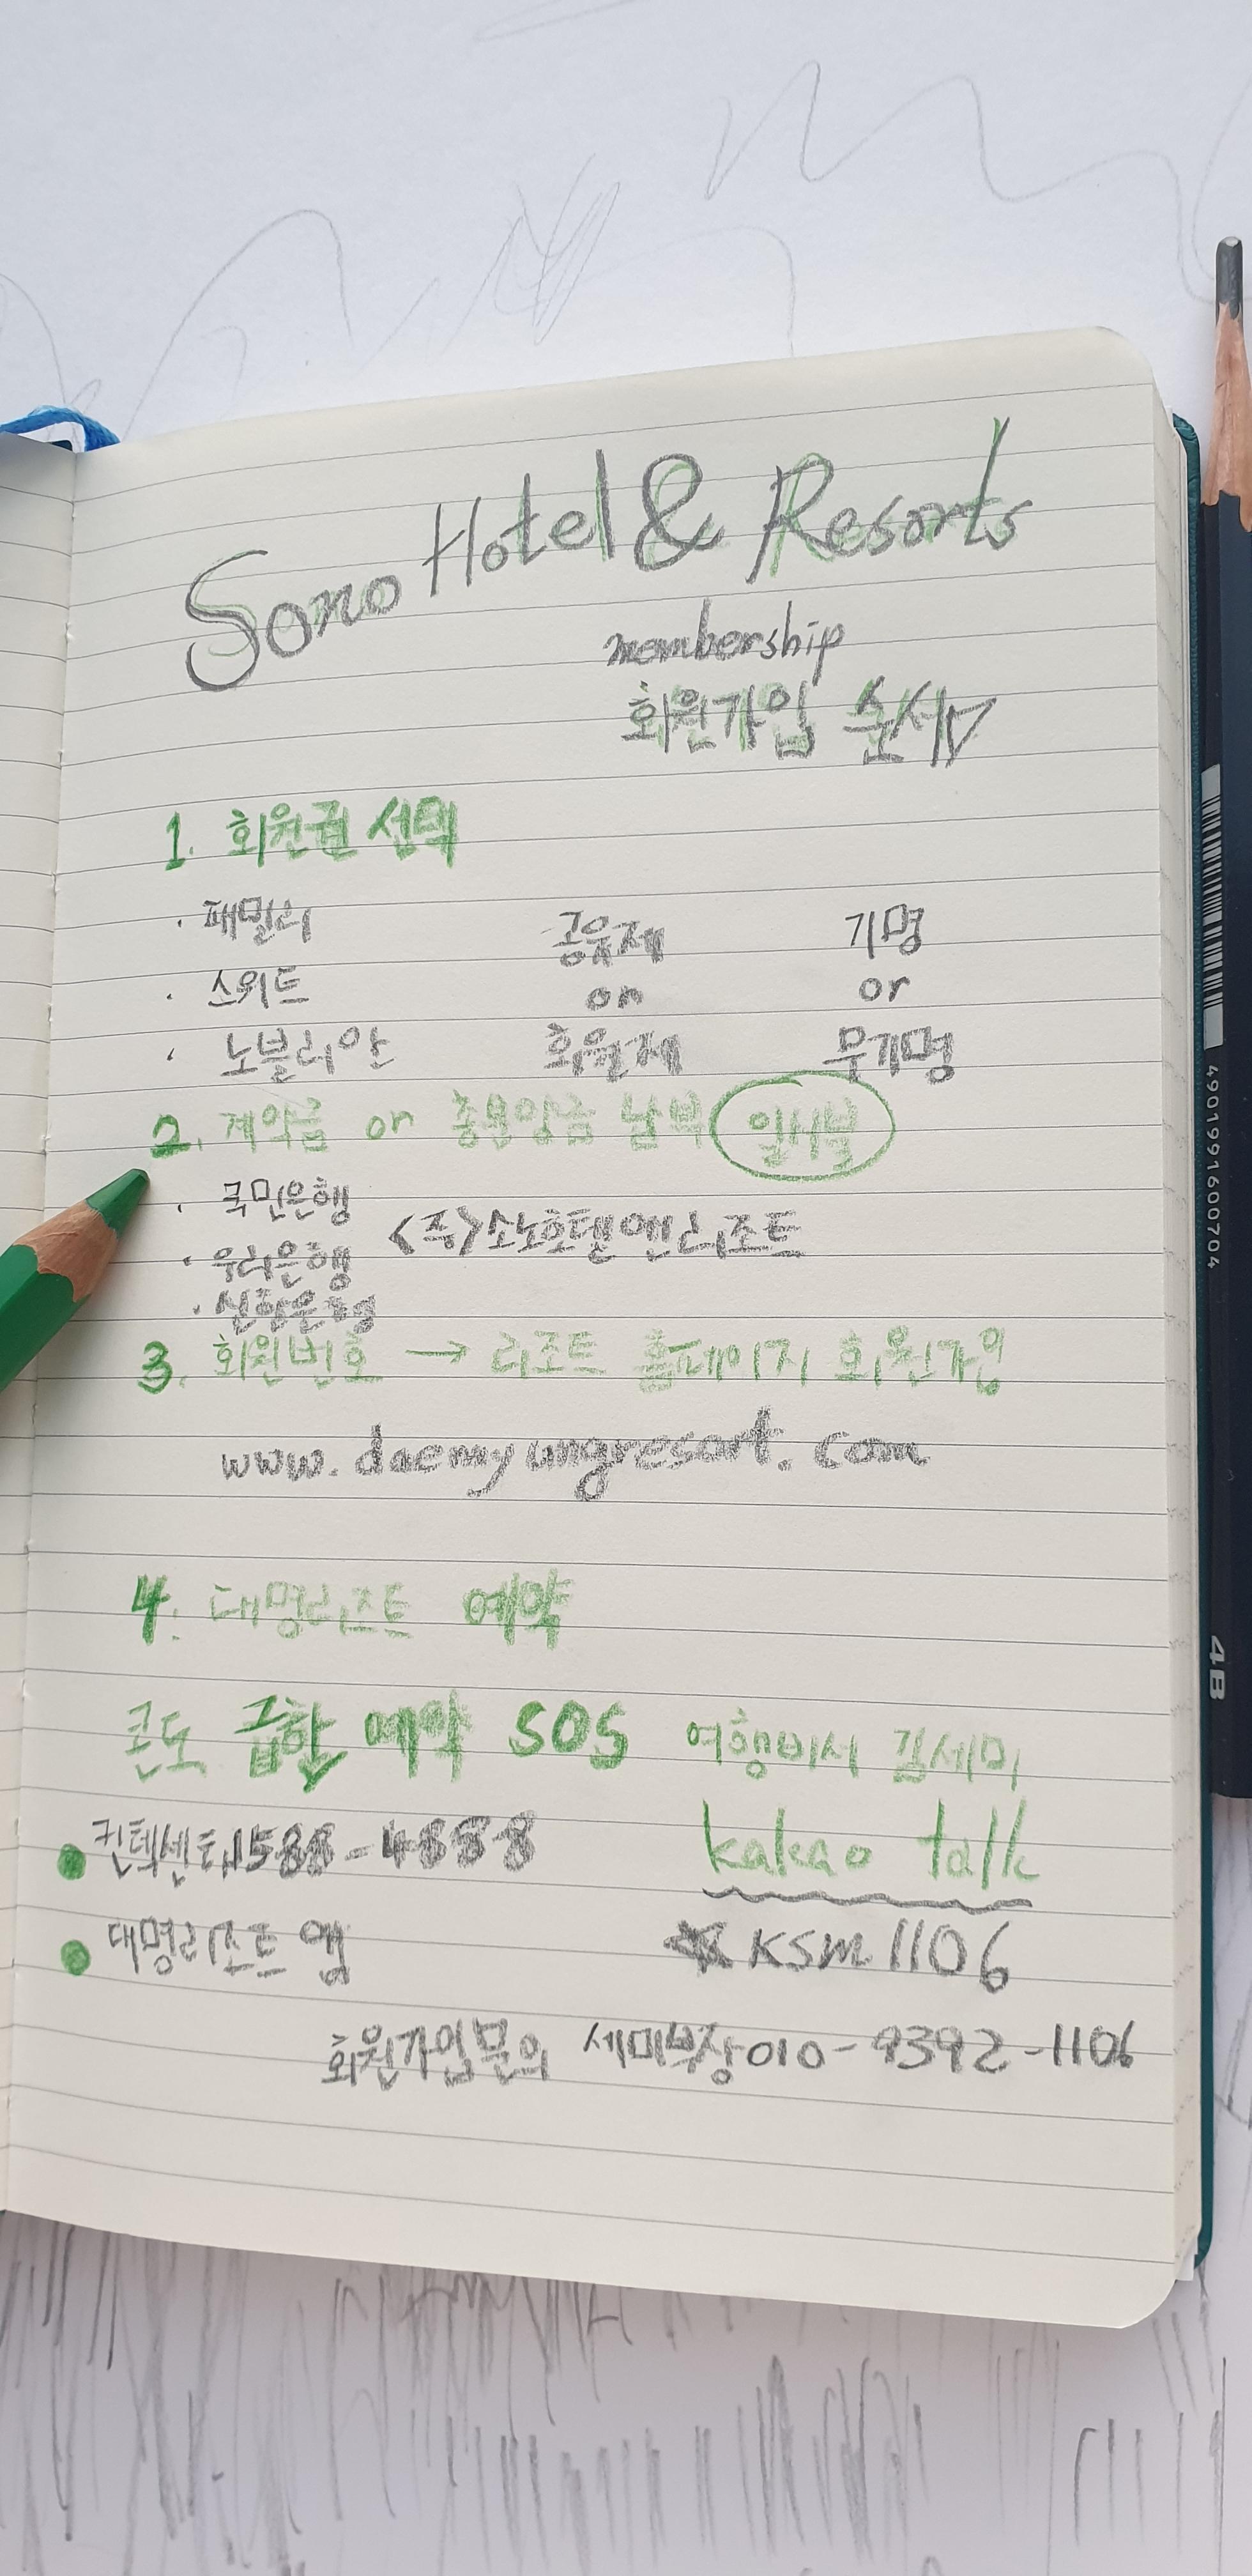 Sono Hotel & Resorts
membership
회원가입 순서
1. 회원권 선택
· 패밀리 공유제 기명
· 스위트 or or
· 노블리안 회원제 무기명
2. 계약금 or 총분양금 납부 일시불
· 국민은행
<주>소노호텔앤리조트
· 우리은행
· 신한은행
3. 회원번호 → 리조트 홈페이지 회원가입
www.daemyungresort.com
4. 대명리조트 예약
콘도 급한 예약 SOS 여행비서 김세미
컨텍센터 1588-4888 kakao talk
대명리조트 앱 ksm1106
회원가입문의 세미부장 010-9392-1106
4901991600704
4B